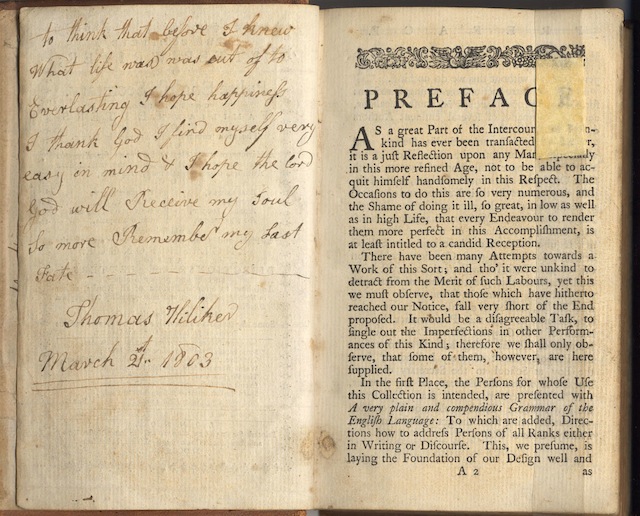 to think that before I knew
What life was was out of to
Everlasting I hope happiness
I thank God I find myself very
easy in mind & I hope the lord
God will Receive my Soul
So more Remember my Last
Fate
Thomas
March 1803
PREFAC
AS a great Part of the Intercour
kind has ever been transacted
it is a juſt Reflection upon any Man
in this more refined Age, not to be able to ac-
quit himſelf handſomely in this Reſpect. The
Occaſions to do this are ſo very numerous, and
the Shame of doing it ill, ſo great, in low as well
as in high Life, that every Endeavour to render
them more perfect in this Accompliſhment, is
at leaſt intitled to a candid Reception.
There have been many Attempts towards a
Work of this Sort; and tho' it were unkind to
detract from the Merit of ſuch Labours, yet this
we muſt obſerve, that thoſe which have hitherto
reached our Notice, fall very ſhort of the End
propoſed. It would be a diſagreeable Taſk, to
ſingle out the Imperfections in other Perform-
ances of this Kind; therefore we ſhall only ob-
ſerve, that ſome of them, however, are here
ſupplied.
In the firſt Place, the Perſons for whoſe Uſe
this Collection is intended, are preſented with
A very plain and compendious Grammar of the
Engliſh Language: To which are added, Direc-
tions how to addreſs Perſons of all Ranks either
in Writing or Diſcourſe. This, we preſume, is
laying the Foundation of our Deſign well and
A 2 as